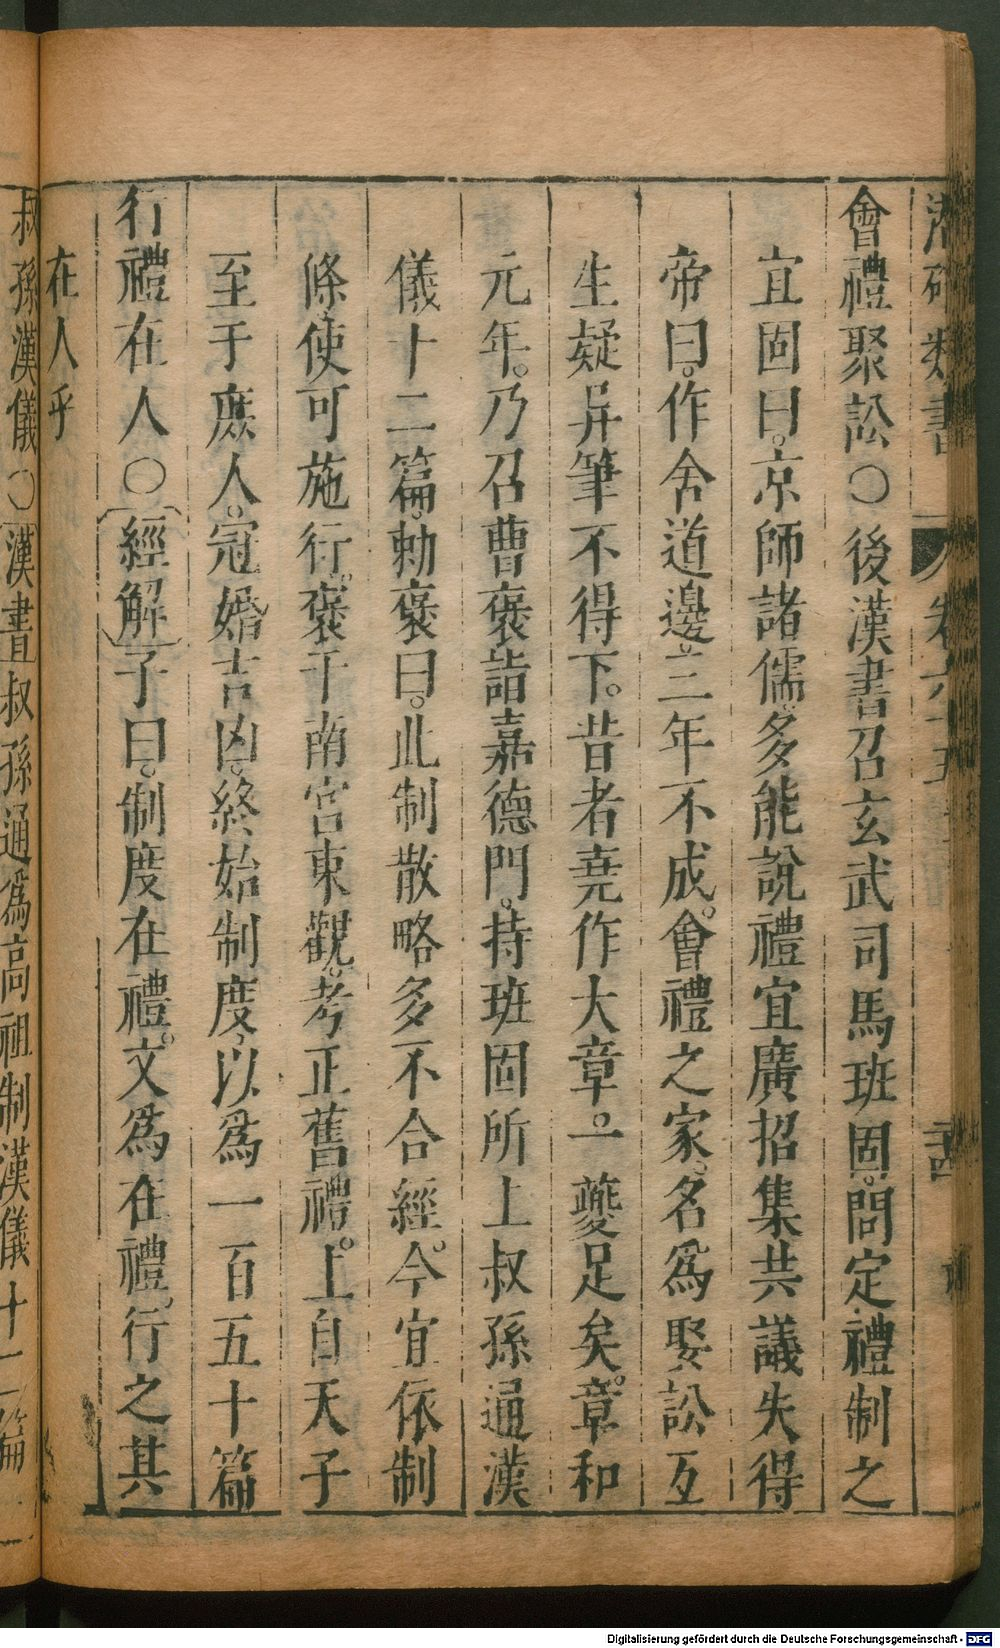 會禮聚訟○後漢書召玄武司馬班固。問定禮制之
宜固曰。京師諸儒多能說禮宜廣招集共議失得
帝曰。作舍道邊三年不成。會禮之家。名爲娶訟互
生疑异筆不得下。昔者堯作大章。一夔足矣。章和
元年。乃召曹褒詣嘉德門。持班固所上叔孫通漢
儀十二篇。勅褒曰。此制散略多不合經。今宜依制
條使可施行。褒于南宮東觀。考正舊禮。上自天子
至于庶人。冠婚吉凶。終始制度以爲一百五十篇
行禮在人○經解子曰。制度在禮。文爲在禮。行之其
在人乎
叔孫漢儀○漢書叔孫通爲高祖制漢儀十二篇
Digitalisierung gefördert durch die Deutsche Forschungsgemeinschaft - DFG